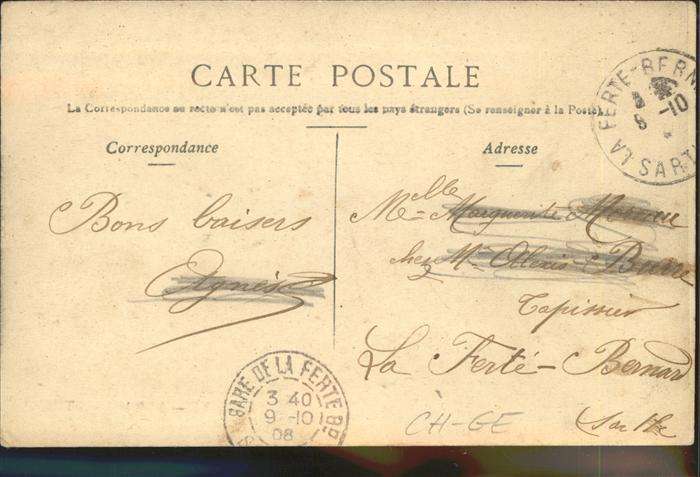 CARTE POSTALE
La Correspondance au recto n'est pas acceptée par tous les pays étrangers (Se renseigner à la Poste)
Correspondance
Adresse
LA FERTE-BERN
10
SARTH
Bons baisers
Agnès
Melle Marguerite
chez Mr Alexis
Tapissier
La Ferté-Bernard
Sarthe
GARE DE LA FERTE-B
3 40
9-10
08
CH-GE